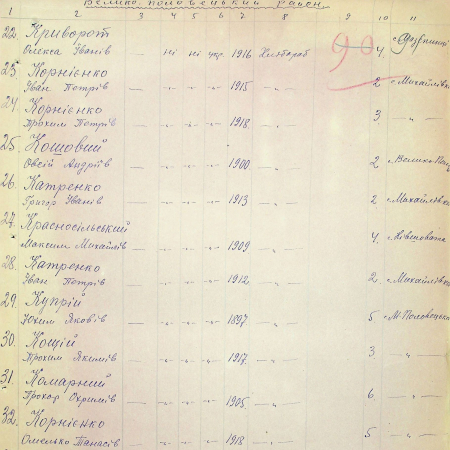 Велико-половецький район
1 2 3 4 5 6 7 8 9 10 11
22. Криворот
Олекса Іванів ні ні укр. 1916 Хлібороб 90 4.
23. Корнієнко
Іван Петрів — „ „ „ 1915 — „ — 2 с. Михайлівка
24 Корнієнко
Прохим Петрів — „ „ „ 1918. — „ — 3 — „ —
25. Кошовий
Овсій Андріїв — „ „ „ 1900 — „ — 2 с. Велико Пол
26. Катренко
Григор Іванів — „ „ „ 1913 — „ — 2 с. Михайлівка
27. Красносільський
Максим Михайлів — „ „ „ 1909 — „ — 4.
28. Катренко
Іван Петрів — „ „ „ 1912 — „ — 2. с. Михайлівка
29. Купрій
Юхим Яковів — „ „ „ 1897 — „ — 5 с. М-Половецьк
30. Кощій
Прохим Якимів — „ „ „ 1917. — „ — 3. — „ —
31. Комарний
Прохор Охримів — „ „ „ 1905. — „ — 6. — „ —
32. Корнієнко
Омелько Танасів — „ „ „ 1918 — „ — 5. — „ —